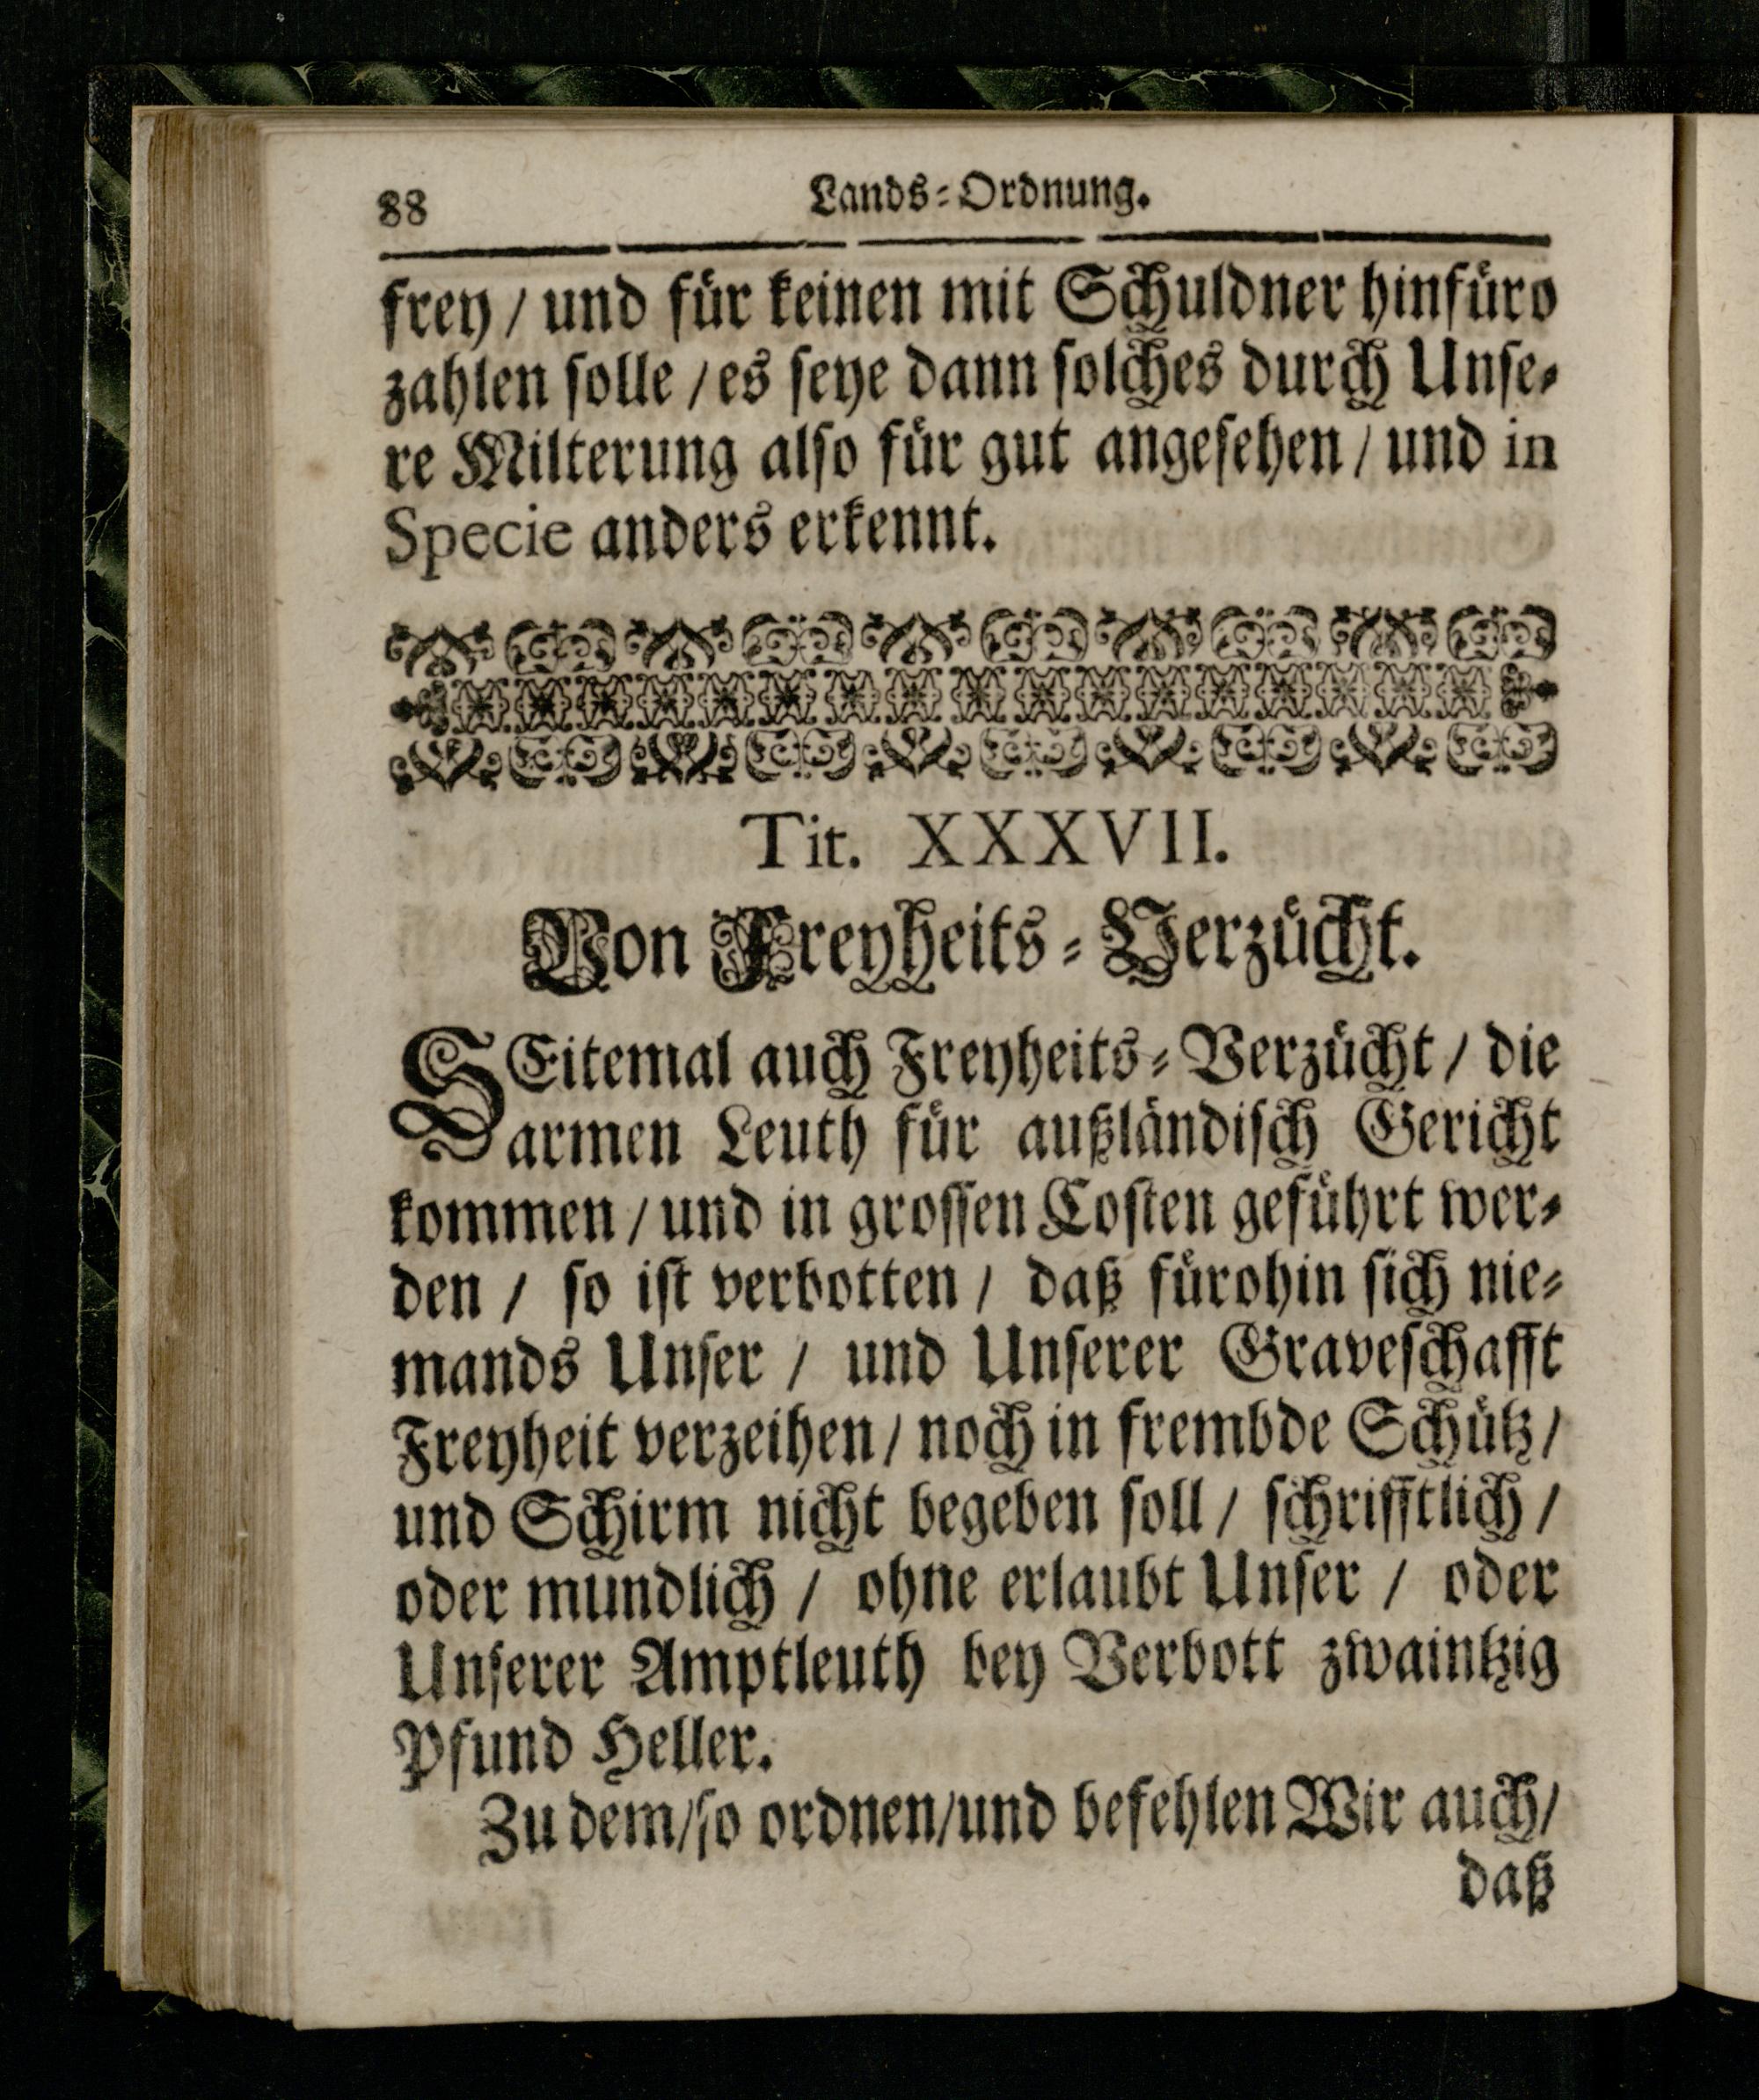 88
Lands-Ordnung.
frey / und für keinen mit Schuldner hinfüro
zahlen solle / es seye dann solches durch Unse-
re Milterung also für gut angesehen / und in
Specie anders erkennt.
Tit. XXXVII.
Von Freyheits-Verzücht.
SEitemal auch Freyheits-Verzücht / die
armen Leuth für außländisch Gericht
kommen / und in grossen Costen geführt wer-
den / so ist verbotten / daß fürohin sich nie-
mands Unser / und Unserer Graveschafft
Freyheit verzeihen / noch in frembde Schütz /
und Schirm nicht begeben soll / schrifftlich /
oder mundlich / ohne erlaubt Unser / oder
Unserer Amptleuth bey Verbott zwaintzig
Pfund Heller.
Zu dem / so ordnen / und befehlen Wir auch /
daß